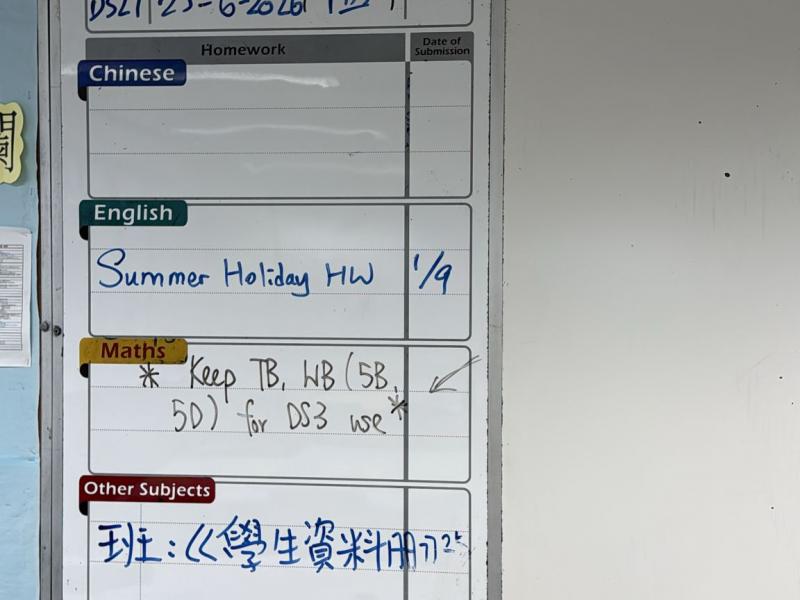 DS2T 25-6-2026
Homework
Date of
Submission
Chinese
English
Summer Holiday HW 1/9
Maths
* Keep TB, WB (5B,
5D) for DS3 use *
Other Subjects
班主:《學生資料冊》